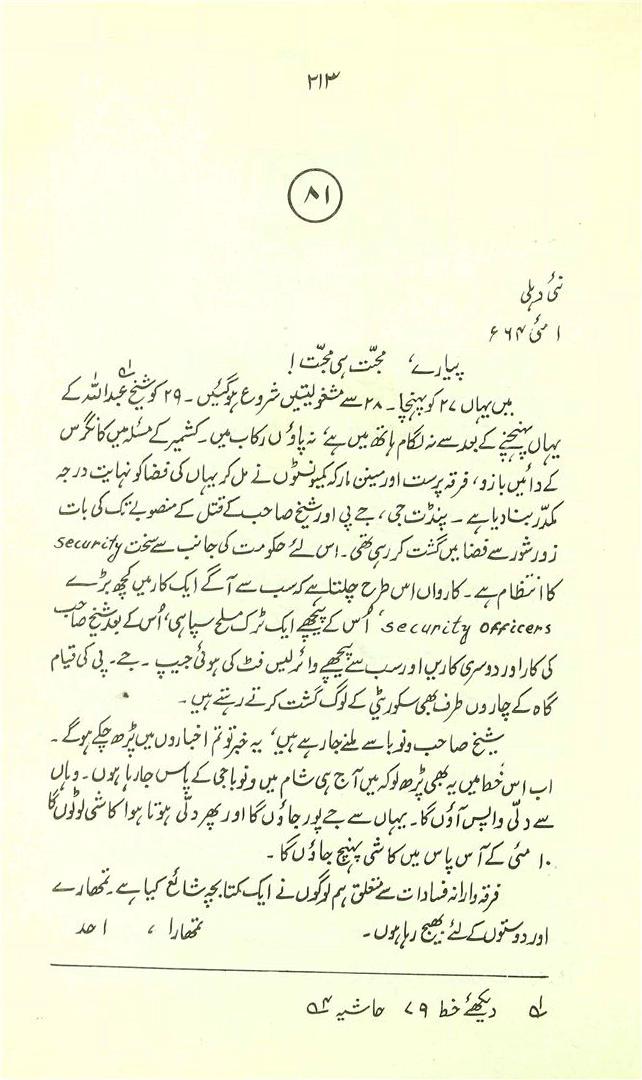 ۲۱۳
۸۱
نئی دہلی
۱ مئی ۶۶۴
پیارے، محبّت ہی محبّت!
میں یہاں ۲۷ کو پہنچا۔ ۲۸ سے مشغولیتیں شروع ہوگئیں۔ ۲۹ کو شیخ عبداللہ کے
یہاں پہنچنے کے بعد سے نہ لگام ہاتھ میں ہے، نہ پاؤں رکاب میں۔ کشمیر کے مسئلہ میں کانگرس
کے دائیں بازو، فرقہ پرست اور سین مارکہ کمیونسٹوں نے مل کر یہاں کی فضا کو نہایت درجہ
مکدّر بنا دیا ہے۔ پنڈت جی، جے پی اور شیخ صاحب کے قتل کے منصوبے تک کی بات
زور شور سے فضا میں گشت کر رہی تھی۔ اس لئے حکومت کی جانب سے سخت security
کا انتظام ہے۔ کارواں اس طرح چلتا ہے کہ سب سے آگے ایک کار میں کچھ بڑے
security officers، اُس کے پیچھے ایک ٹرک مسلح سپاہی، اُس کے بعد شیخ صاحب
کی کار اور دوسری کاریں اور سب سے پیچھے وائرلیس فٹ کی ہوئی جیپ۔ جے۔ پی کی قیام
گاہ کے چاروں طرف بھی سکوریٹی کے لوگ گشت کرتے رہتے ہیں۔
شیخ صاحب ونوبا سے ملنے جا رہے ہیں، یہ خبر تو تم اخباروں میں پڑھ چکے ہوگے۔
اب اس خط میں یہ بھی پڑھ لو کہ میں آج ہی شام میں ونوبا جی کے پاس جا رہا ہوں۔ وہاں
سے دلّی واپس آؤں گا۔ یہاں سے جے پور جاؤں گا اور پھر دلّی ہوتا ہوا کاشی لوٹوں گا
۱۰ مئی کے آس پاس میں کاشی پہنچ جاؤں گا۔
فرقہ وارانہ فسادات سے متعلق ہم لوگوں نے ایک کتابچہ شائع کیا ہے۔ تمھارے
اور دوستوں کے لئے بھیج رہا ہوں۔ تمھارا، احد
۱؎ دیکھئے خط ۷۹ حاشیہ ۴؎